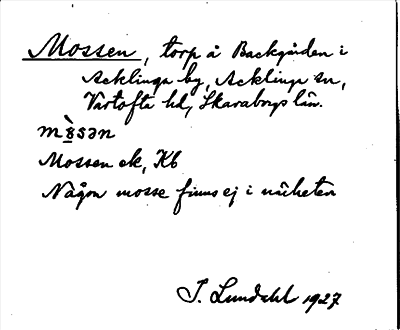 Mossen, torp å Backgården i
Acklinga by, Acklinga sn,
Vartofta hd, Skaraborgs län.
mòsən
Mossen ek, Kb
Någon mosse finns ej i närheten
J. Lundahl 1927